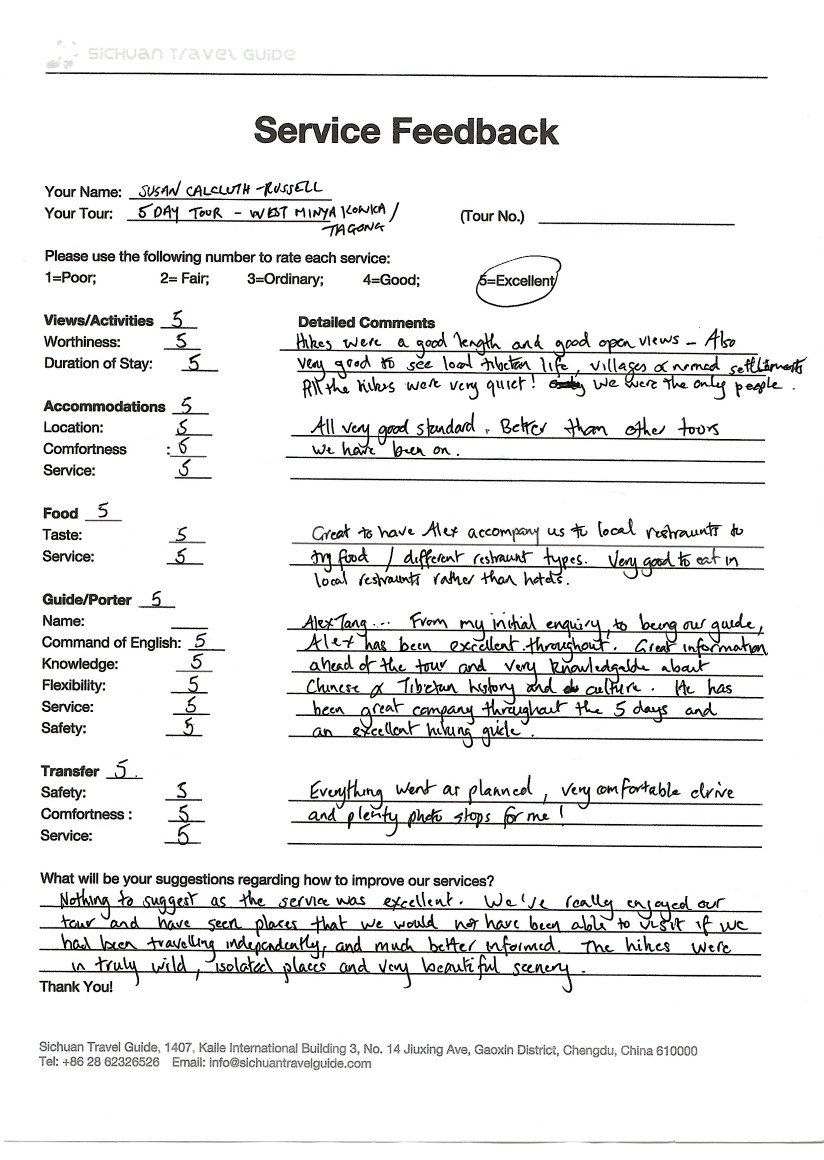 SiCHUAN TRAVEL GUIDE
Service Feedback
Your Name: SUSAN CALCLUTH-RUSSELL
Your Tour: 5 DAY TOUR - WEST MINYA KONKA / (Tour No.)
TAGONG
Please use the following number to rate each service:
1=Poor; 2= Fair; 3=Ordinary; 4=Good; 5=Excellent
Views/Activities 5 Detailed Comments
Worthiness: 5 Hikes were a good length and good open views - Also
Duration of Stay: 5 very good to see local tibetan life, villages & nomad settlements
All the hikes were very quiet! We were the only people.
Accommodations 5
Location: 5 All very good standard. Better than other tours
Comfortness : 5 we have been on.
Service: 5
Food 5
Taste: 5 Great to have Alex accompany us to local restraunts to
Service: 5 try food / different restraunt types. Very good to eat in
local restraunts rather than hotels.
Guide/Porter 5
Name: Alex Tang... From my initial enquiry, to being our guide,
Command of English: 5 Alex has been excellent throughout. Great information
Knowledge: 5 ahead of the tour and very knowledgable about
Flexibility: 5 Chinese & Tibetan history and culture. He has
Service: 5 been great company throughout the 5 days and
Safety: 5 an excellent hiking guide.
Transfer 5
Safety: 5 Everything went as planned, very comfortable drive
Comfortness : 5 and plenty photo stops for me!
Service: 5
What will be your suggestions regarding how to improve our services?
Nothing to suggest as the service was excellent. We've really enjoyed our
tour and have seen places that we would not have been able to visit if we
had been travelling independently, and much better informed. The hikes were
in truly wild, isolated places and very beautiful scenery.
Thank You!
Sichuan Travel Guide, 1407, Kaile International Building 3, No. 14 Jiuxing Ave, Gaoxin District, Chengdu, China 610000
Tel: +86 28 62326526 Email: info@sichuantravelguide.com